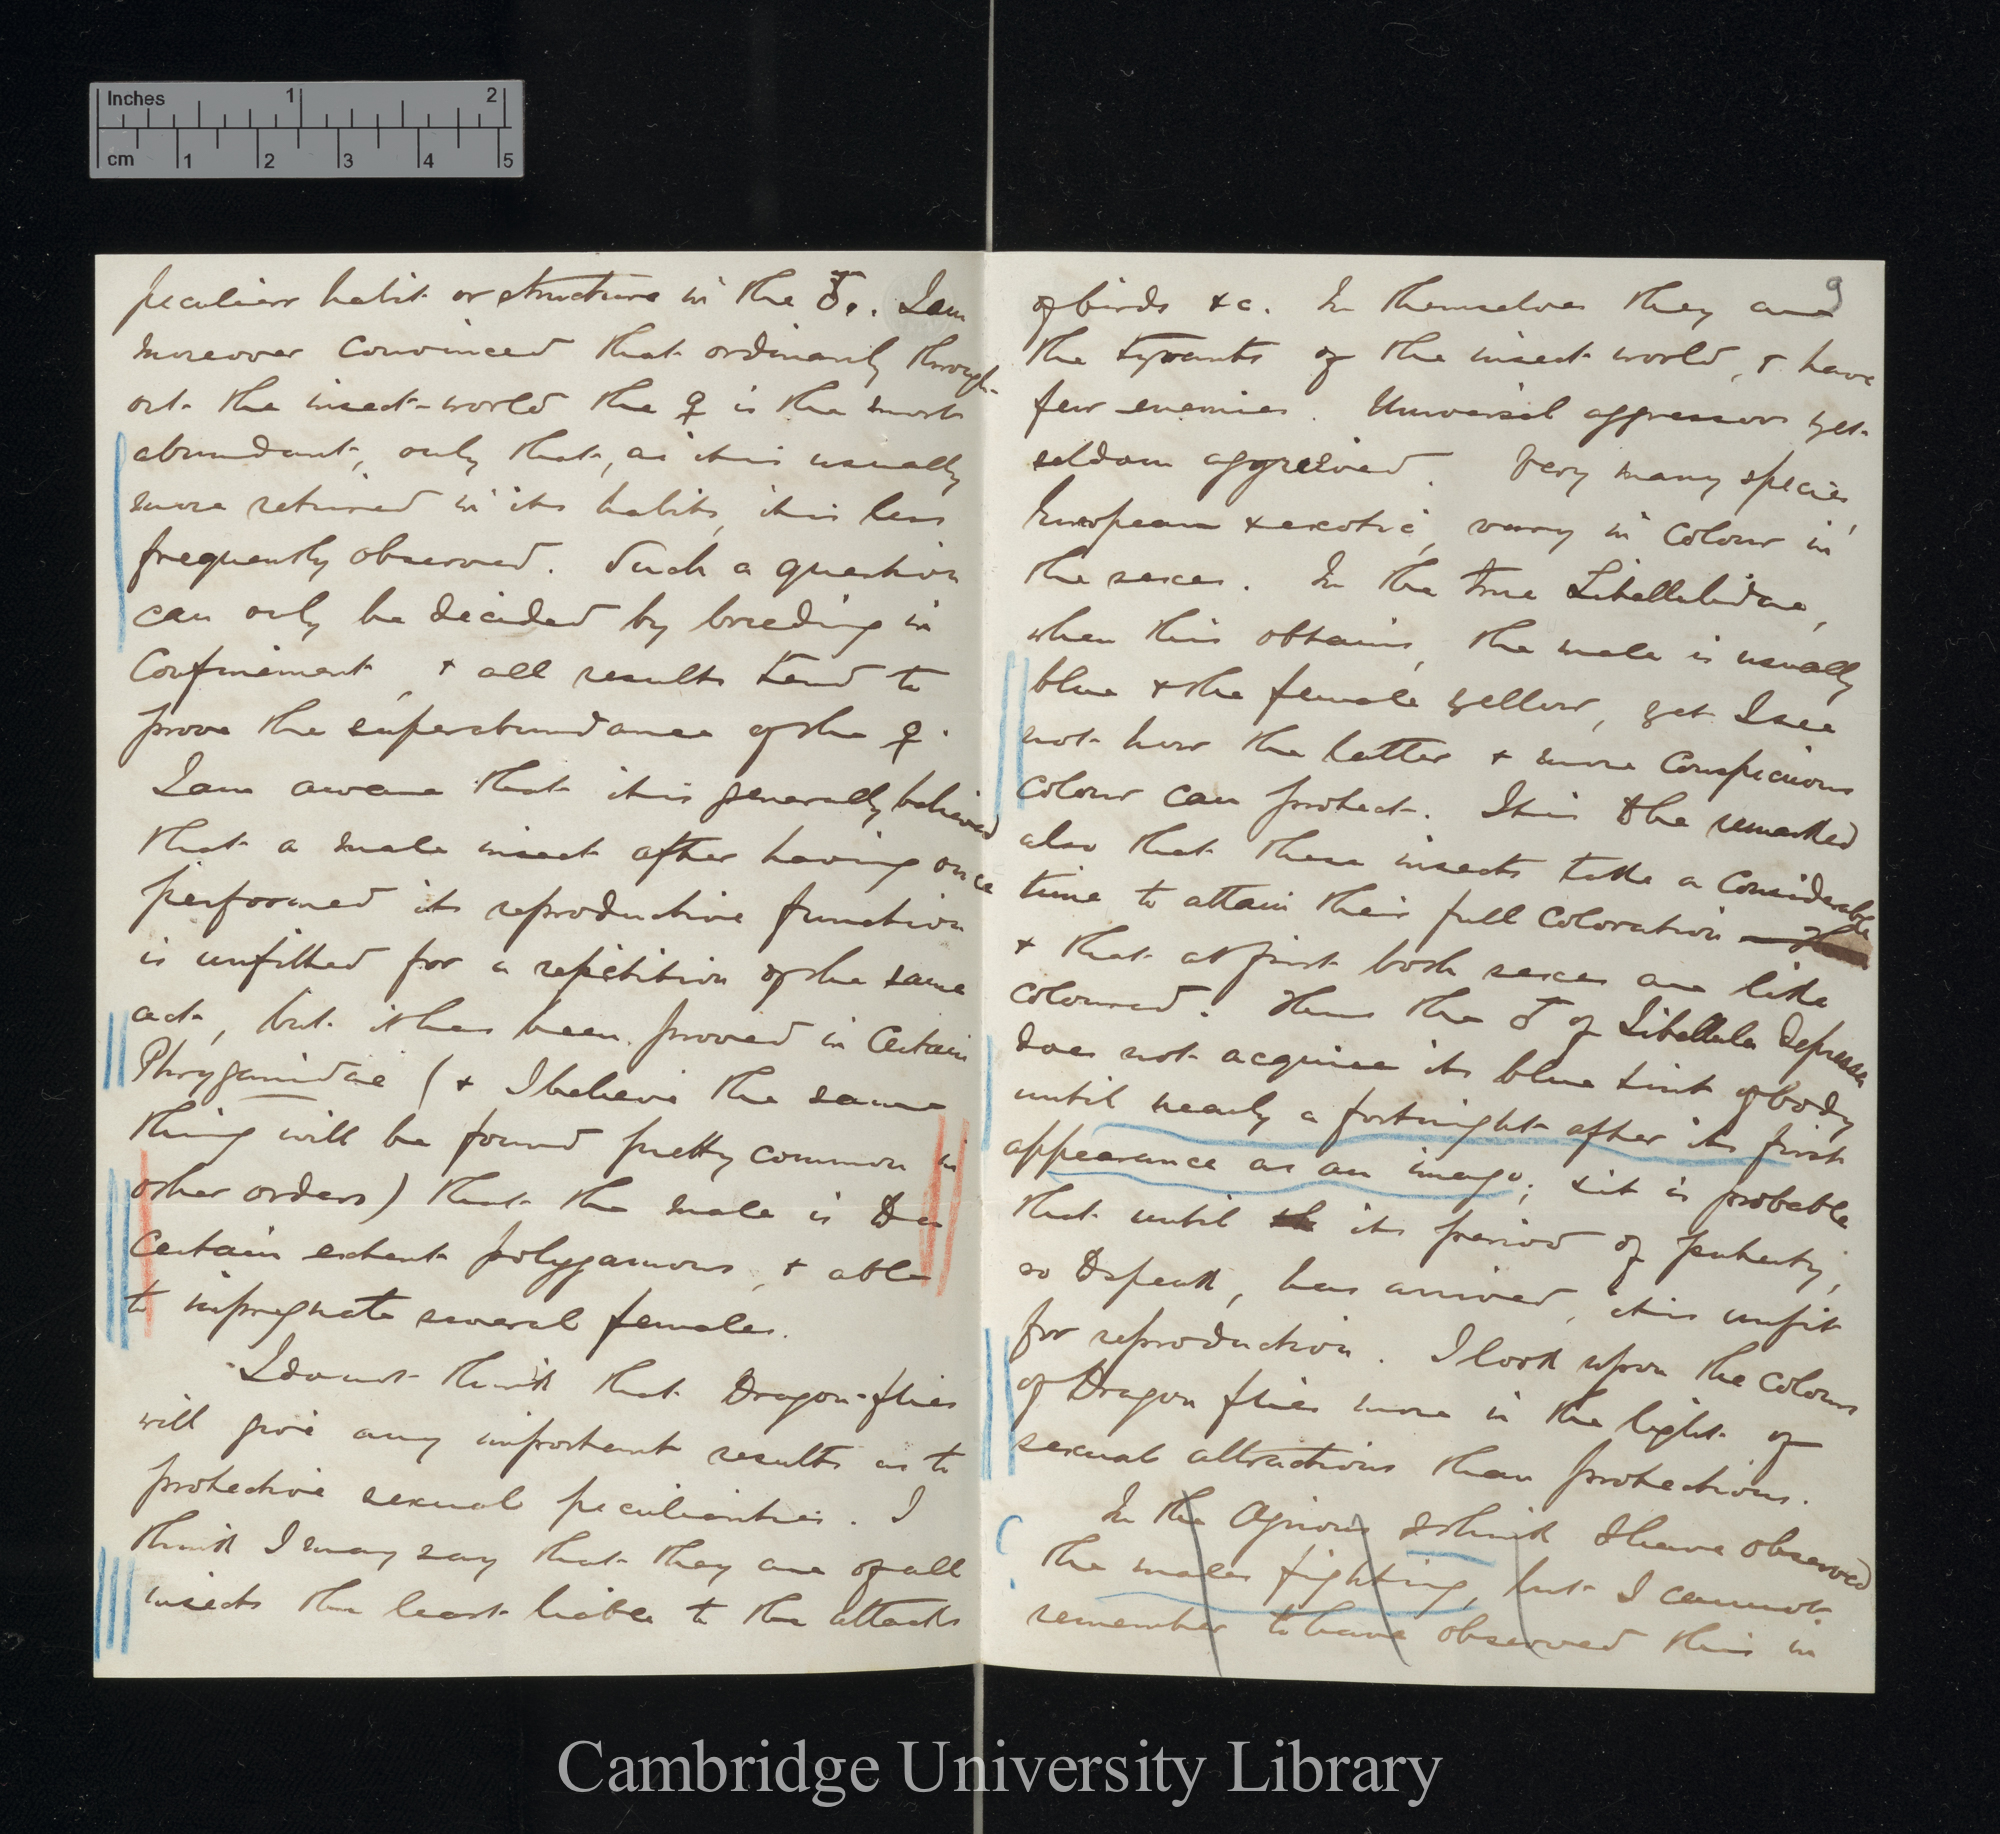 Inches 1 2
cm 1 2 3 4 5
peculiar habit or structure in the ♂. I am
moreover convinced that ordinarily through-
out the insect-world the ♀ is the more
abundant, only that, as it is usually
more retired in its habits, it is less
frequently observed. Such a question
can only be decided by breeding in
confinement, & all results tend to
prove the superabundance of the ♀.
I am aware that it is generally believed
that a male insect after having once
performed its reproductive function
is unfitted for a repetition of the same
act, but it has been proved in certain
Phryganidae (& I believe the same
thing will be found pretty common in
other orders) that the male is to a
certain extent polygamous, & able
to impregnate several females.
I do not think that Dragon-flies
will give any important results as to
protective sexual peculiarities. I
think I may say that they are of all
insects the least liable to the attacks
9
of birds &c. In themselves they are
the tyrants of the insect world, & have
few enemies. Universal aggressors yet
seldom aggrieved. Very many species,
European & exotic, vary in colour in
the sexes. In the true Libellulidae,
when this obtains, the male is usually
blue & the female yellow, yet I see
not how the latter & more conspicuous
colour can protect. It is to be remarked
also that these insects take a considerable
time to attain their full coloration
& that at first both sexes are like
coloured. Thus the ♂ of Libellula depressa
does not acquire its blue tint of body
until nearly a fortnight after its first
appearance as an imago; & it is probable
that until its period of puberty,
so to speak, has arrived, it is unfit
for reproduction. I look upon the colours
of Dragon flies more in the light of
sexual attractions than protections.
In the Agrions I think I have observed
the males fighting, but I cannot
remember to have observed this in
Cambridge University Library